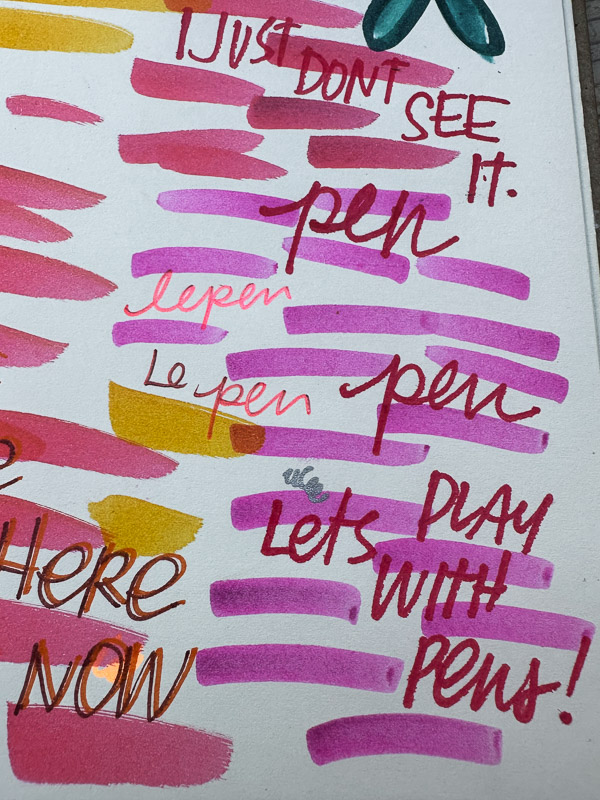 I JUST
DONT
SEE
IT.
pen
lepen
Le pen
pen
Lets PLAY
WITH
Pens!
HERE
NOW